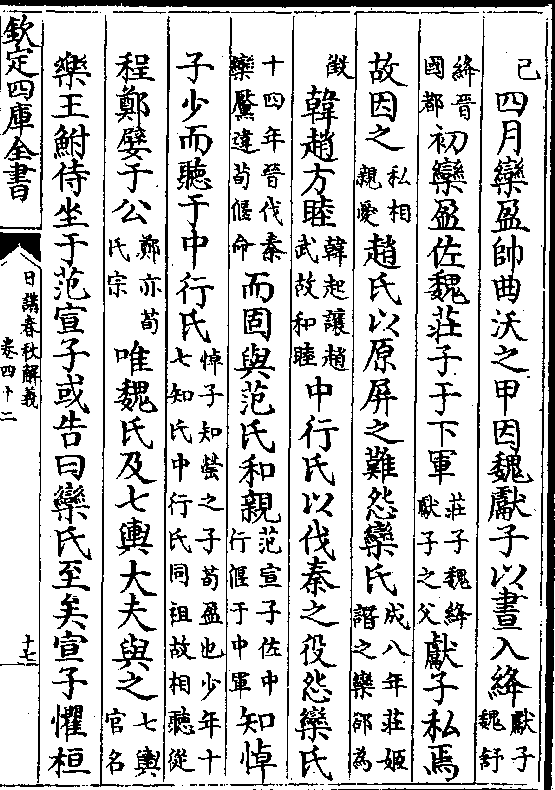 已四月欒盈帥曲沃之甲因魏獻子以晝入絳獻子魏舒
絳晉國都初欒盈佐魏莊子于下軍莊子魏絳獻子之父獻子私焉
故因之私相親愛趙氏以原屏之難怨欒氏成八年莊姬譖之欒郤為
徵韓趙方睦韓起讓趙武故和睦中行氏以伐秦之役怨欒氏
十四年晉伐秦欒黶違荀偃命而固與范氏和親范宣子佐中行偃于中軍知悼
子少而聽于中行氏悼子知罃之子荀盈也少年十七知氏中行氏同祖故相聽從
程鄭嬖于公鄭亦荀氏宗唯魏氏及七輿大夫與之七輿官名
樂王鮒侍坐于范宣子或告曰欒氏至矣宣子懼桓
欽定四庫全書
日講春秋解義
卷四十二
十七